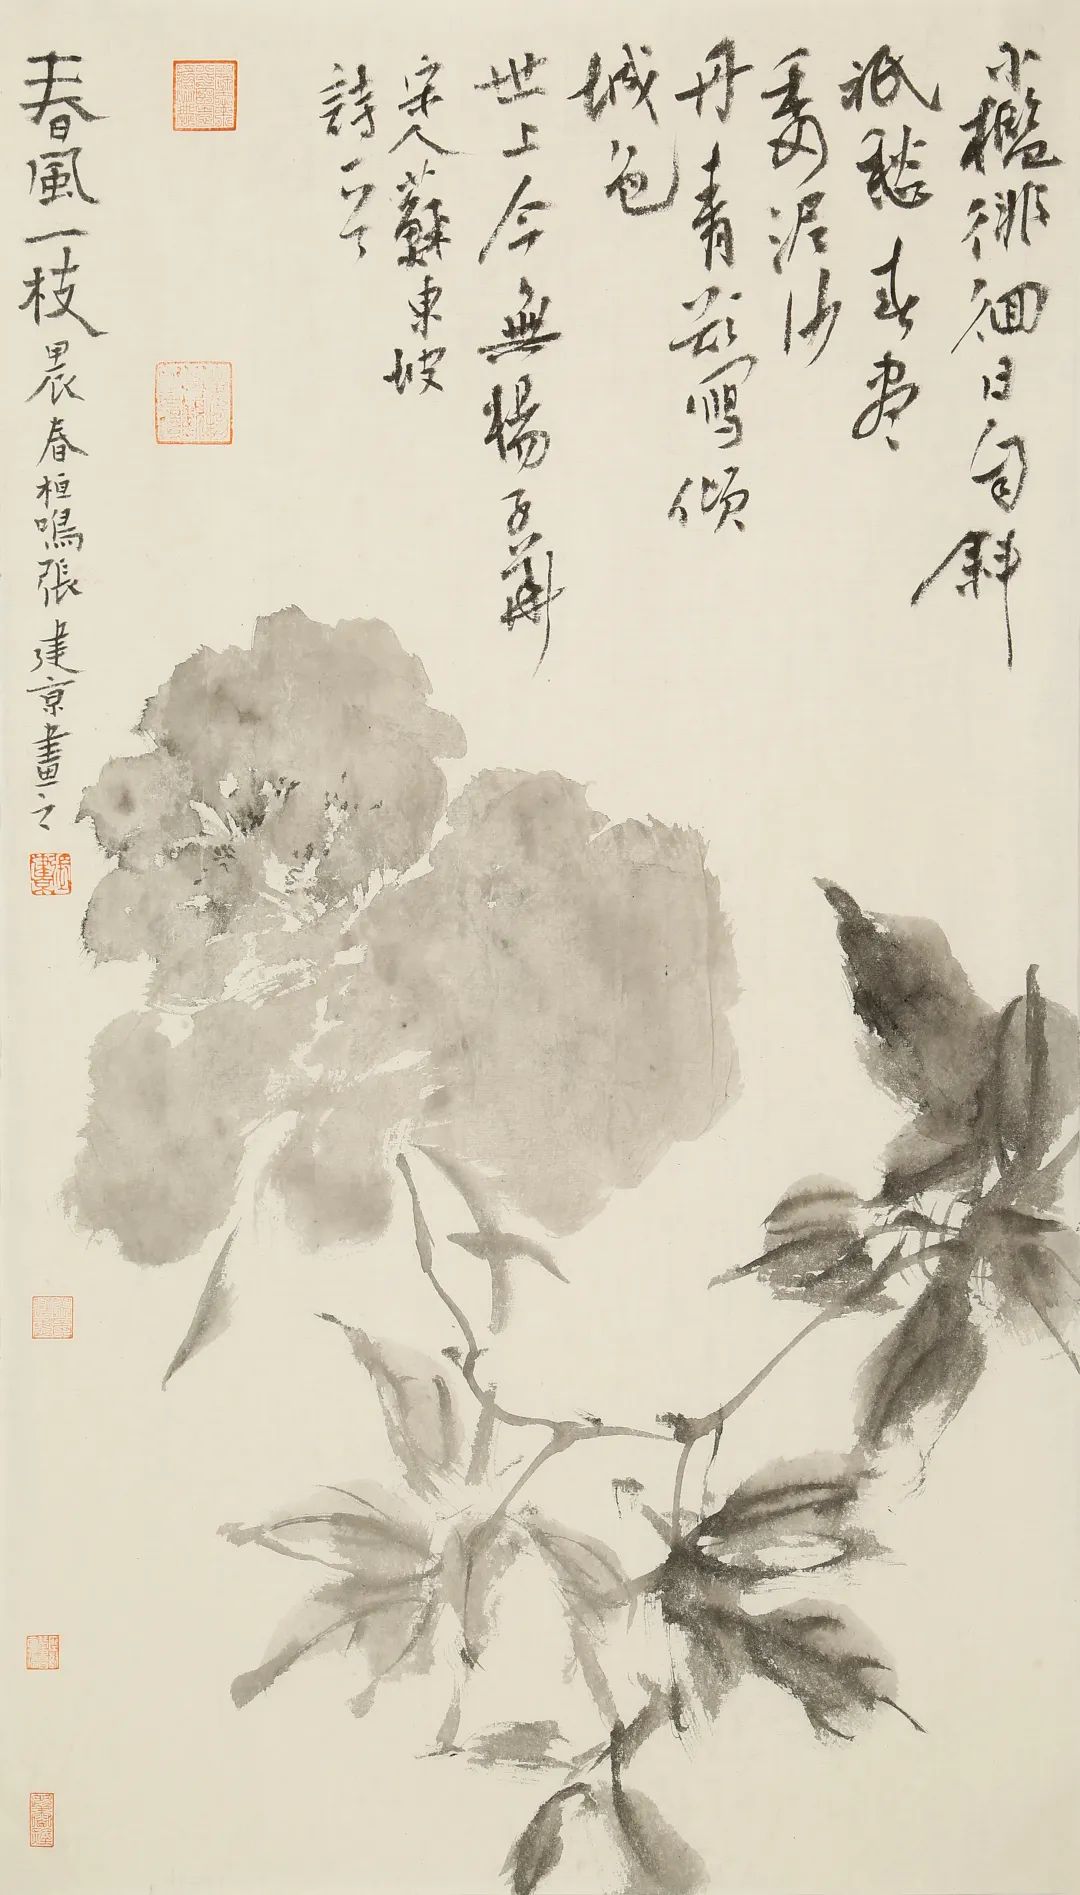 小檻徘徊日自斜
祇愁春盡
委泥沙
丹青欲寫傾
城色
世上今無楊子華
宋人蘇東坡
詩一首
春風一枝 甲辰春桓鳴張建京畫之
張建京